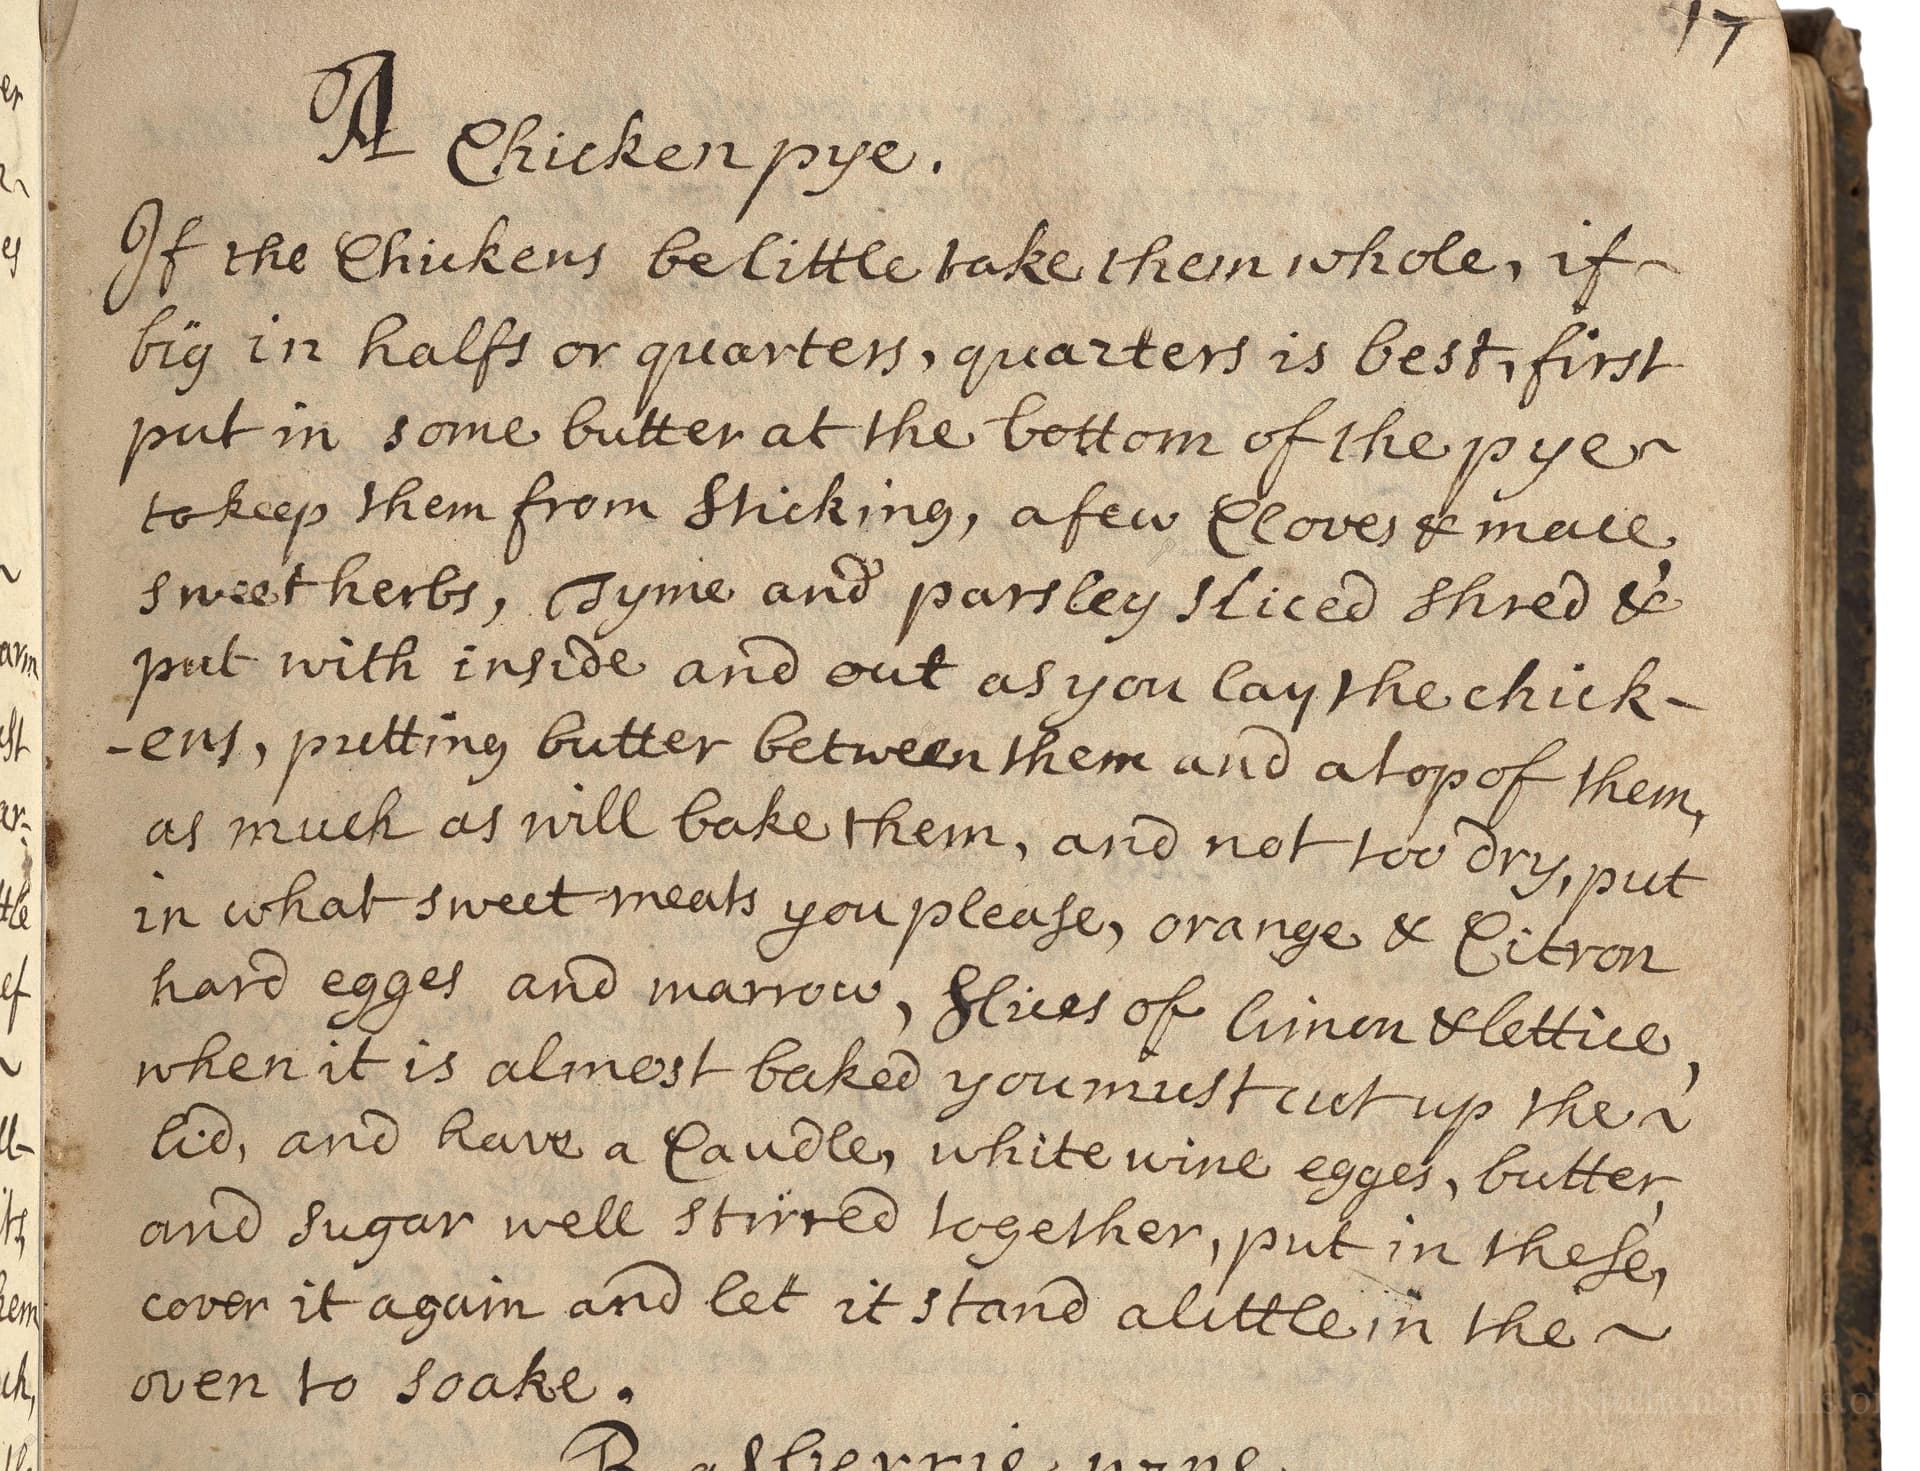 17
A Chicken pye.
If the Chickens be little take them whole, if
big in halfs or quarters, quarters is best, first
put in some butter at the bottom of the pye
to keep them from Sticking, a few Cloves & mace,
sweet herbs, Tyme and parsley sliced shred &
put with inside and out as you lay the chick-
-ens, putting butter between them and atop of them,
as much as will bake them, and not too dry, put
in what sweet meats you please, orange & Citron
hard egges and marrow, Slices of limon & lettice,
when it is almost baked you must cut up the
lid, and have a Caudle, white wine egges, butter,
and sugar well stirred together, put in these,
cover it again and let it stand a little in the
oven to soake.
Rasberrie